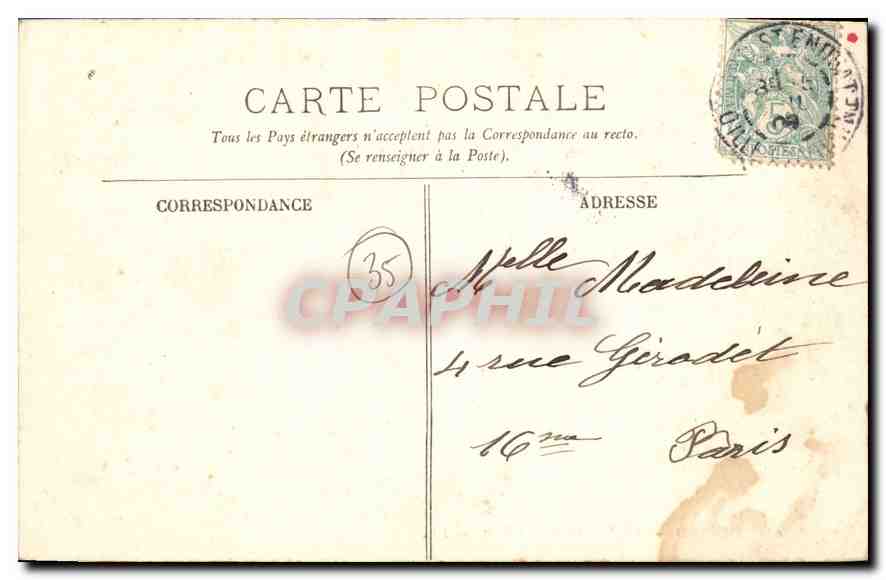 CARTE POSTALE
Tous les Pays étrangers n'acceptent pas la Correspondance au recto.
(Se renseigner à la Poste).
CORRESPONDANCE
ADRESSE
35
CPAPHIL
Melle Madeleine
4 rue Girodet
16me Paris
5
POSTES